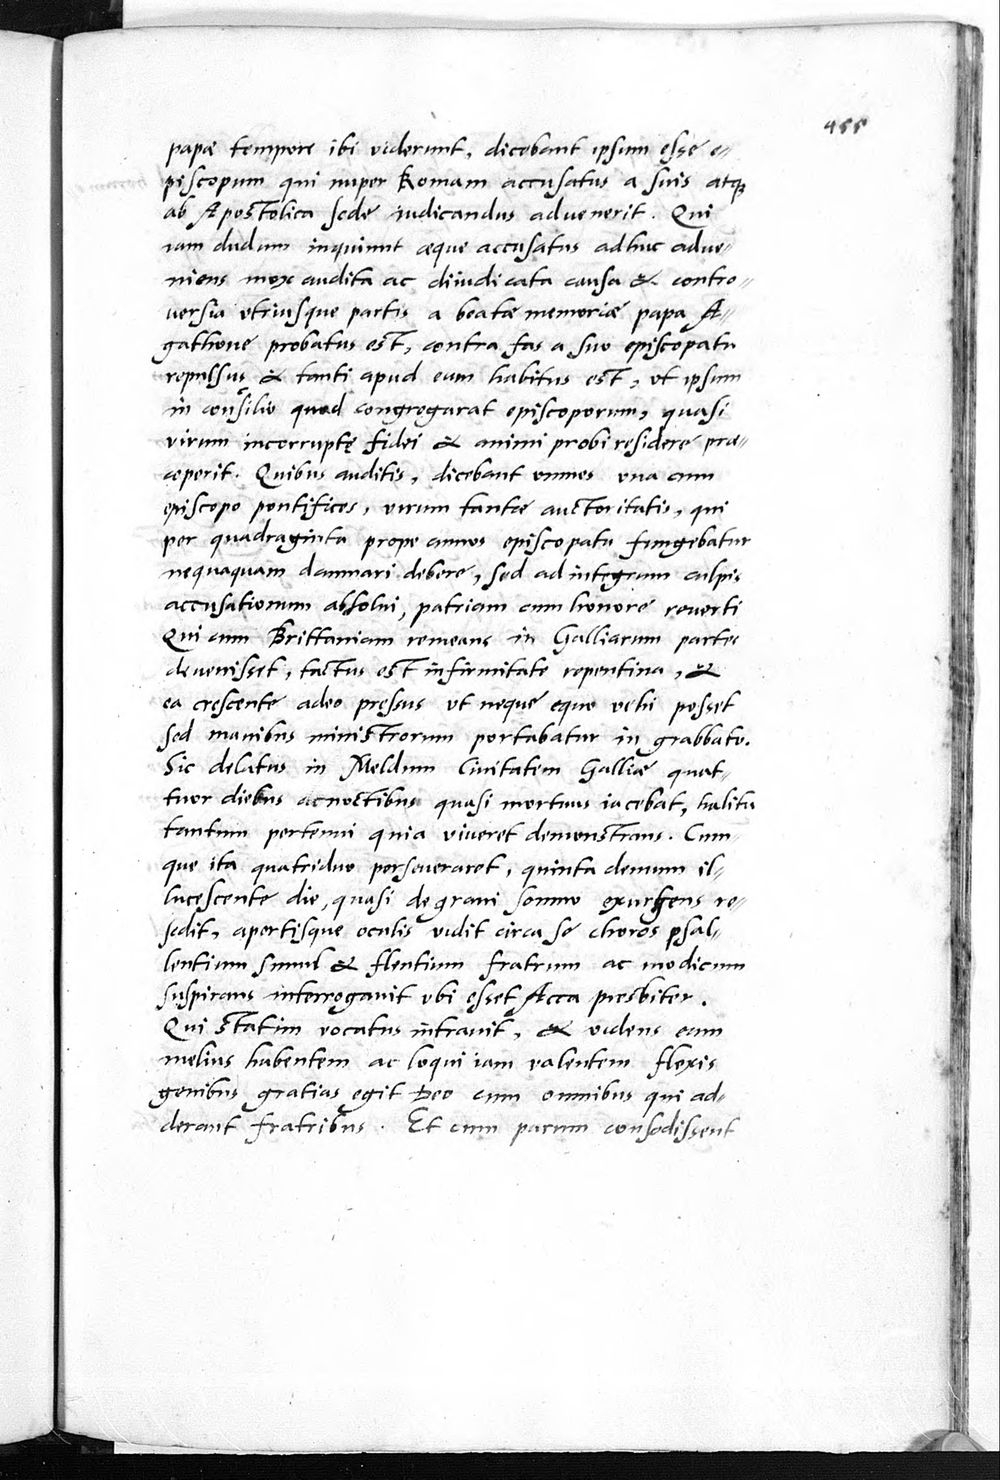 455
papæ tempore ibi viderunt, dicebant ipsum esse e-
piscopum qui nuper Romam accusatus a suis atq;
ab Apostolica sede iudicandus advenerit. Qui
iam dudum inquiunt æque accusatus adhuc adve-
niens mox audita ac diiudicata causa & contro-
versia utriusque partis a beatæ memoriæ papa A-
gathone probatus est, contra fas a suo episcopatu
repulsus & tanti apud eum habitus est, ut ipsum
in consilio quod congregarat episcoporum, quasi
virum incorruptę fidei & animi probi residere præ-
ceperit. Quibus auditis, dicebant omnes una cum
episcopo pontifices, virum tantæ auctoritatis, qui
per quadraginta prope annos episcopatu fungebatur
nequaquam damnari debere, sed ad integrum culpis
accusationum absolvi, patriam cum honore reverti
Qui cum Brittaniam remeans in Galliarum partes
devenisset, tactus est infirmitate repentina, &
ea crescente adeo pressus ut neque equo vehi posset
sed manibus ministrorum portabatur in grabbato.
Sic delatus in Meldum Civitatem Galliæ quat-
tuor diebus ac noctibus quasi mortuus iacebat, halitu
tantum pertenui quia viveret demonstrans. Cum-
que ita quatriduo perseveraret, quinta demum il-
lucescente die, quasi de gravi somno exurgens re-
sedit, apertisque oculis vidit circa se choros psal-
lentium simul & flentium fratrum ac modicum
suspirans interrogavit ubi esset Acca presbiter.
Qui statim vocatus intravit, & videns eum
melius habentem ac loqui iam valentem flexis
genibus gratias egit Deo cum omnibus qui ad-
derant fratribus. Et cum parum consedissent